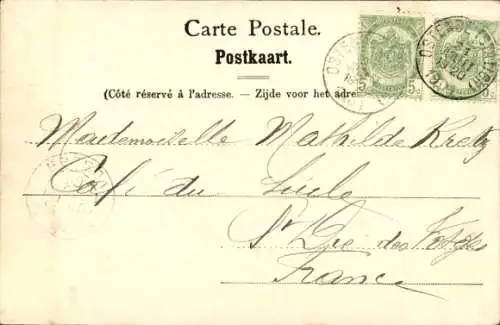 Carte Postale.
Postkaart.
(Côté réservé à l'adresse. — Zijde voor het adres
5c 5c
OSTENDE
OSTENDE
Mademoiselle Mathilde Kretz
Café du Siècle
St Dié des Vosges
France